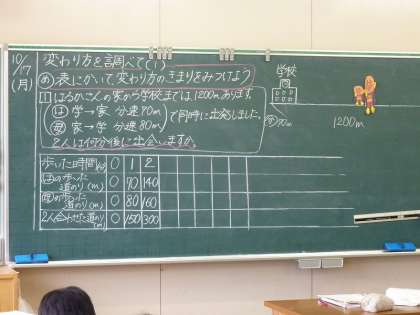 10/17(月)
変わり方を調べて(1)
め 表にかいて変わり方のきまりをみつけよう
1 はるかさんの家から学校までは1200mあります。
は 学→家 分速70m
家→学 分速80m
で同時に出発しました。
2人は何分後に出会いますか。
歩いた時間(分) 0 1 2
はの歩いた道のり(m) 0 70 140
の歩いた道のり(m) 0 80 160
2人合わせた道のり(m) 0 150 300
学校
70m
1200m